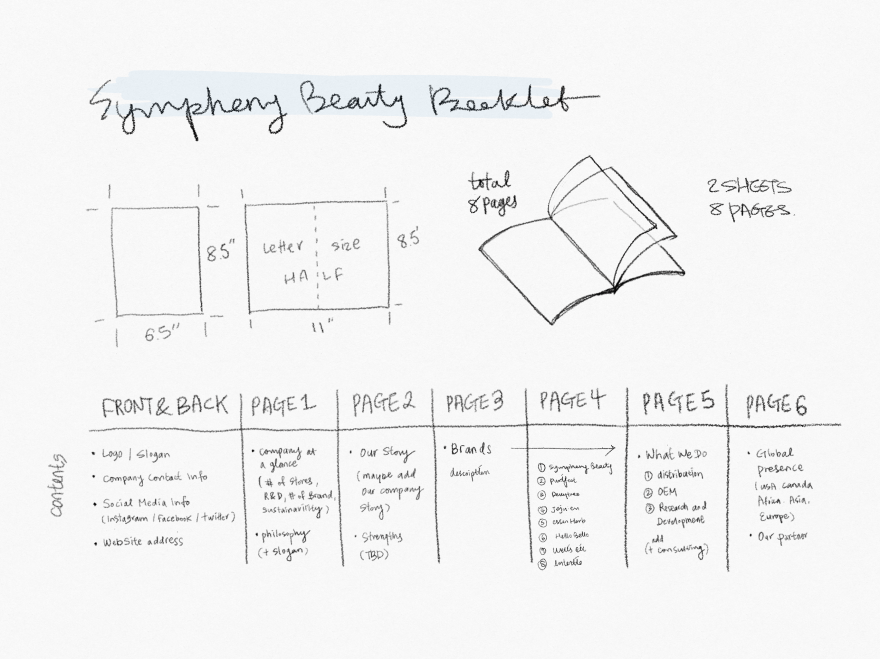 Symphony Beauty Booklet
total
8 pages
2 SHEETS
8 PAGES.
8.5"
Letter size
HALF
8.5'
6.5"
11"
contents
FRONT & BACK
• Logo / Slogan
• Company Contact Info
• Social Media Info
(Instagram / Facebook / twitter)
• Website address
PAGE 1
• company at
a glance
( # of stores,
R&D, # of Brand,
sustainability )
• philosophy
(+ slogan)
PAGE 2
• Our Story
(maybe add
our company
story)
• Strengths
(TBD)
PAGE 3
• Brands
description
PAGE 4
① Symphony Beauty
② Purifect
⑥ Hello Bello
PAGE 5
• What We Do
① distribution
② OEM
③ Research and
Development
add
(+ consulting)
PAGE 6
• Global
presence
( USA Canada
Africa Asia,
Europe)
• Our partner